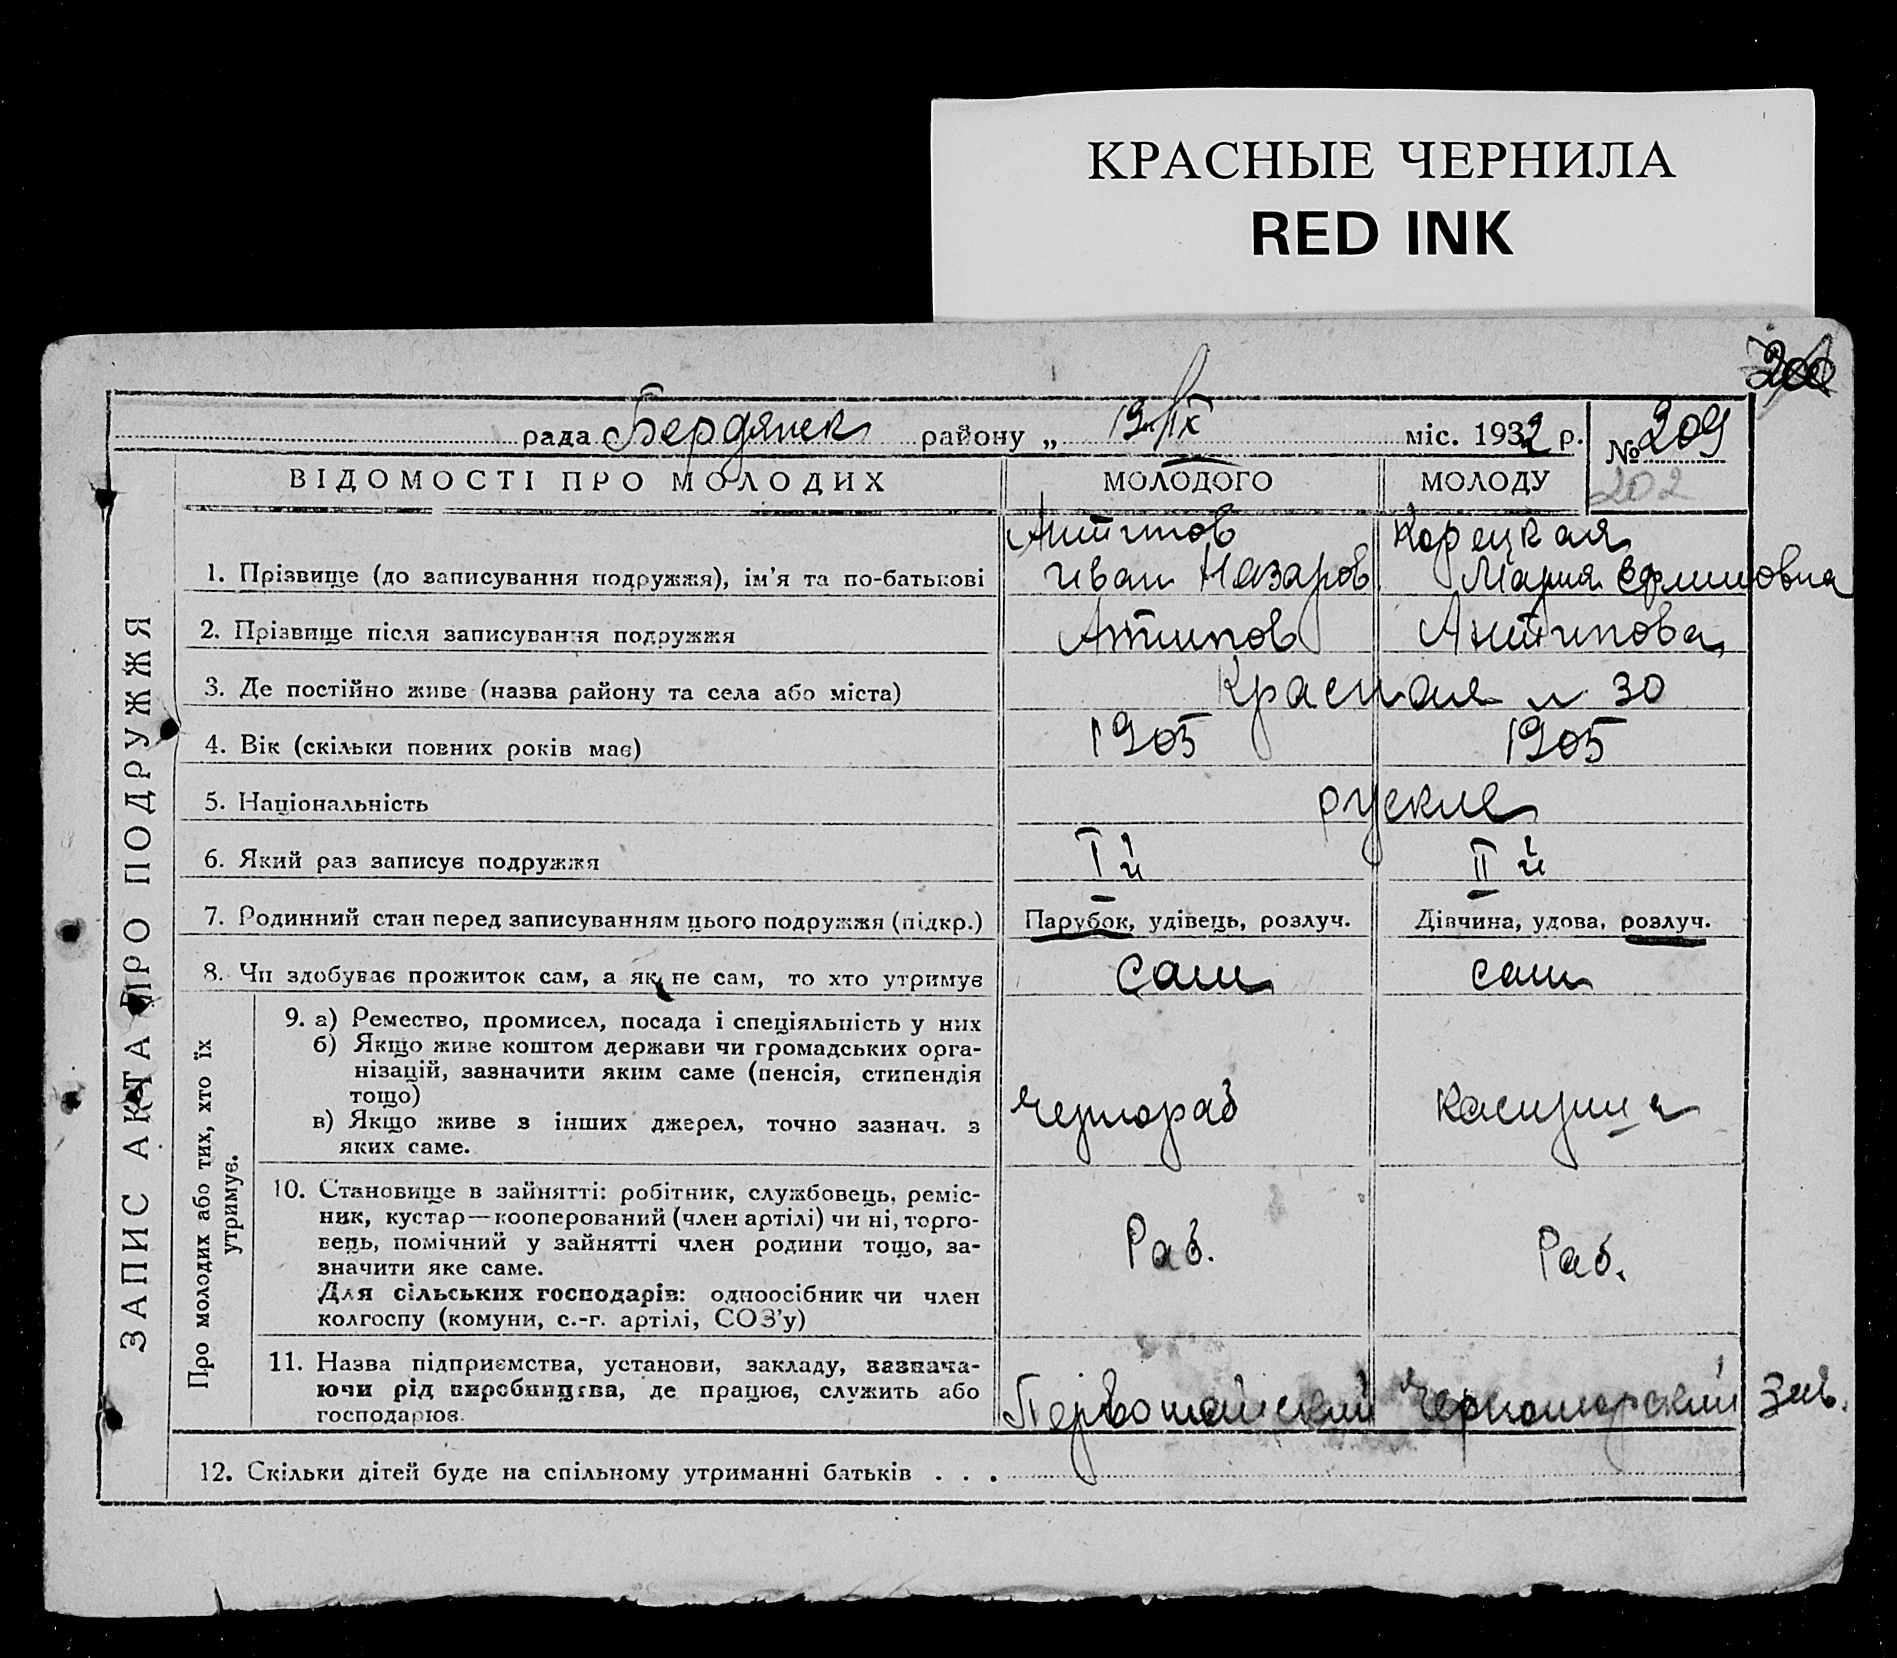 КРАСНЫЕ ЧЕРНИЛА
RED INK
200
рада Бердянск району „ 19/IX міс. 1932 р. № 209
202
ВІДОМОСТІ ПРО МОЛОДИХ МОЛОДОГО МОЛОДУ
Антипов Корецкая
1. Прізвище (до записування подружжя), ім’я та по-батькові Иван Назаров Мария Ефимовна
2. Прізвище після записування подружжя Антипов Антипова
3. Де постійно живе (назва району та села або міста) Красная 30
4. Вік (скільки повних років має) 1905 1905
5. Національність руские
6. Який раз записує подружжя I й II й
7. Родинний стан перед записуванням цього подружжя (підкр.) Парубок, удівець, розлуч. Дівчина, удова, розлуч.
8. Чи здобуває прожиток сам, а як не сам, то хто утримує сам сам
9. а) Ремество, промисел, посада і спеціяльність у них
б) Якщо живе коштом держави чи громадських орга-
нізацій, зазначити яким саме (пенсія, стипендія
тощо)
в) Якщо живе з інших джерел, точно зазнач. з
яких саме.
чернораб
10. Становище в зайнятті: робітник, службовець, реміс-
ник, кустар—кооперований (член артілі) чи ні, торго-
вець, помічний у зайнятті член родини тощо, за-
значити яке саме.
Для сільських господарів: одноосібник чи член
колгоспу (комуни, с.-г. артілі, СОЗ’у)
Раб. Раб.
11. Назва підприємства, установи, закладу, зазнача-
ючи рід виробництва, де працює, служить або
господарює.
Первомайский Черноморский Зав.
12. Скільки дітей буде на спільному утриманні батьків . . .
ЗАПИС АКТА ПРО ПОДРУЖЖЯ
Про молодих або тих, хто їх
утримує.